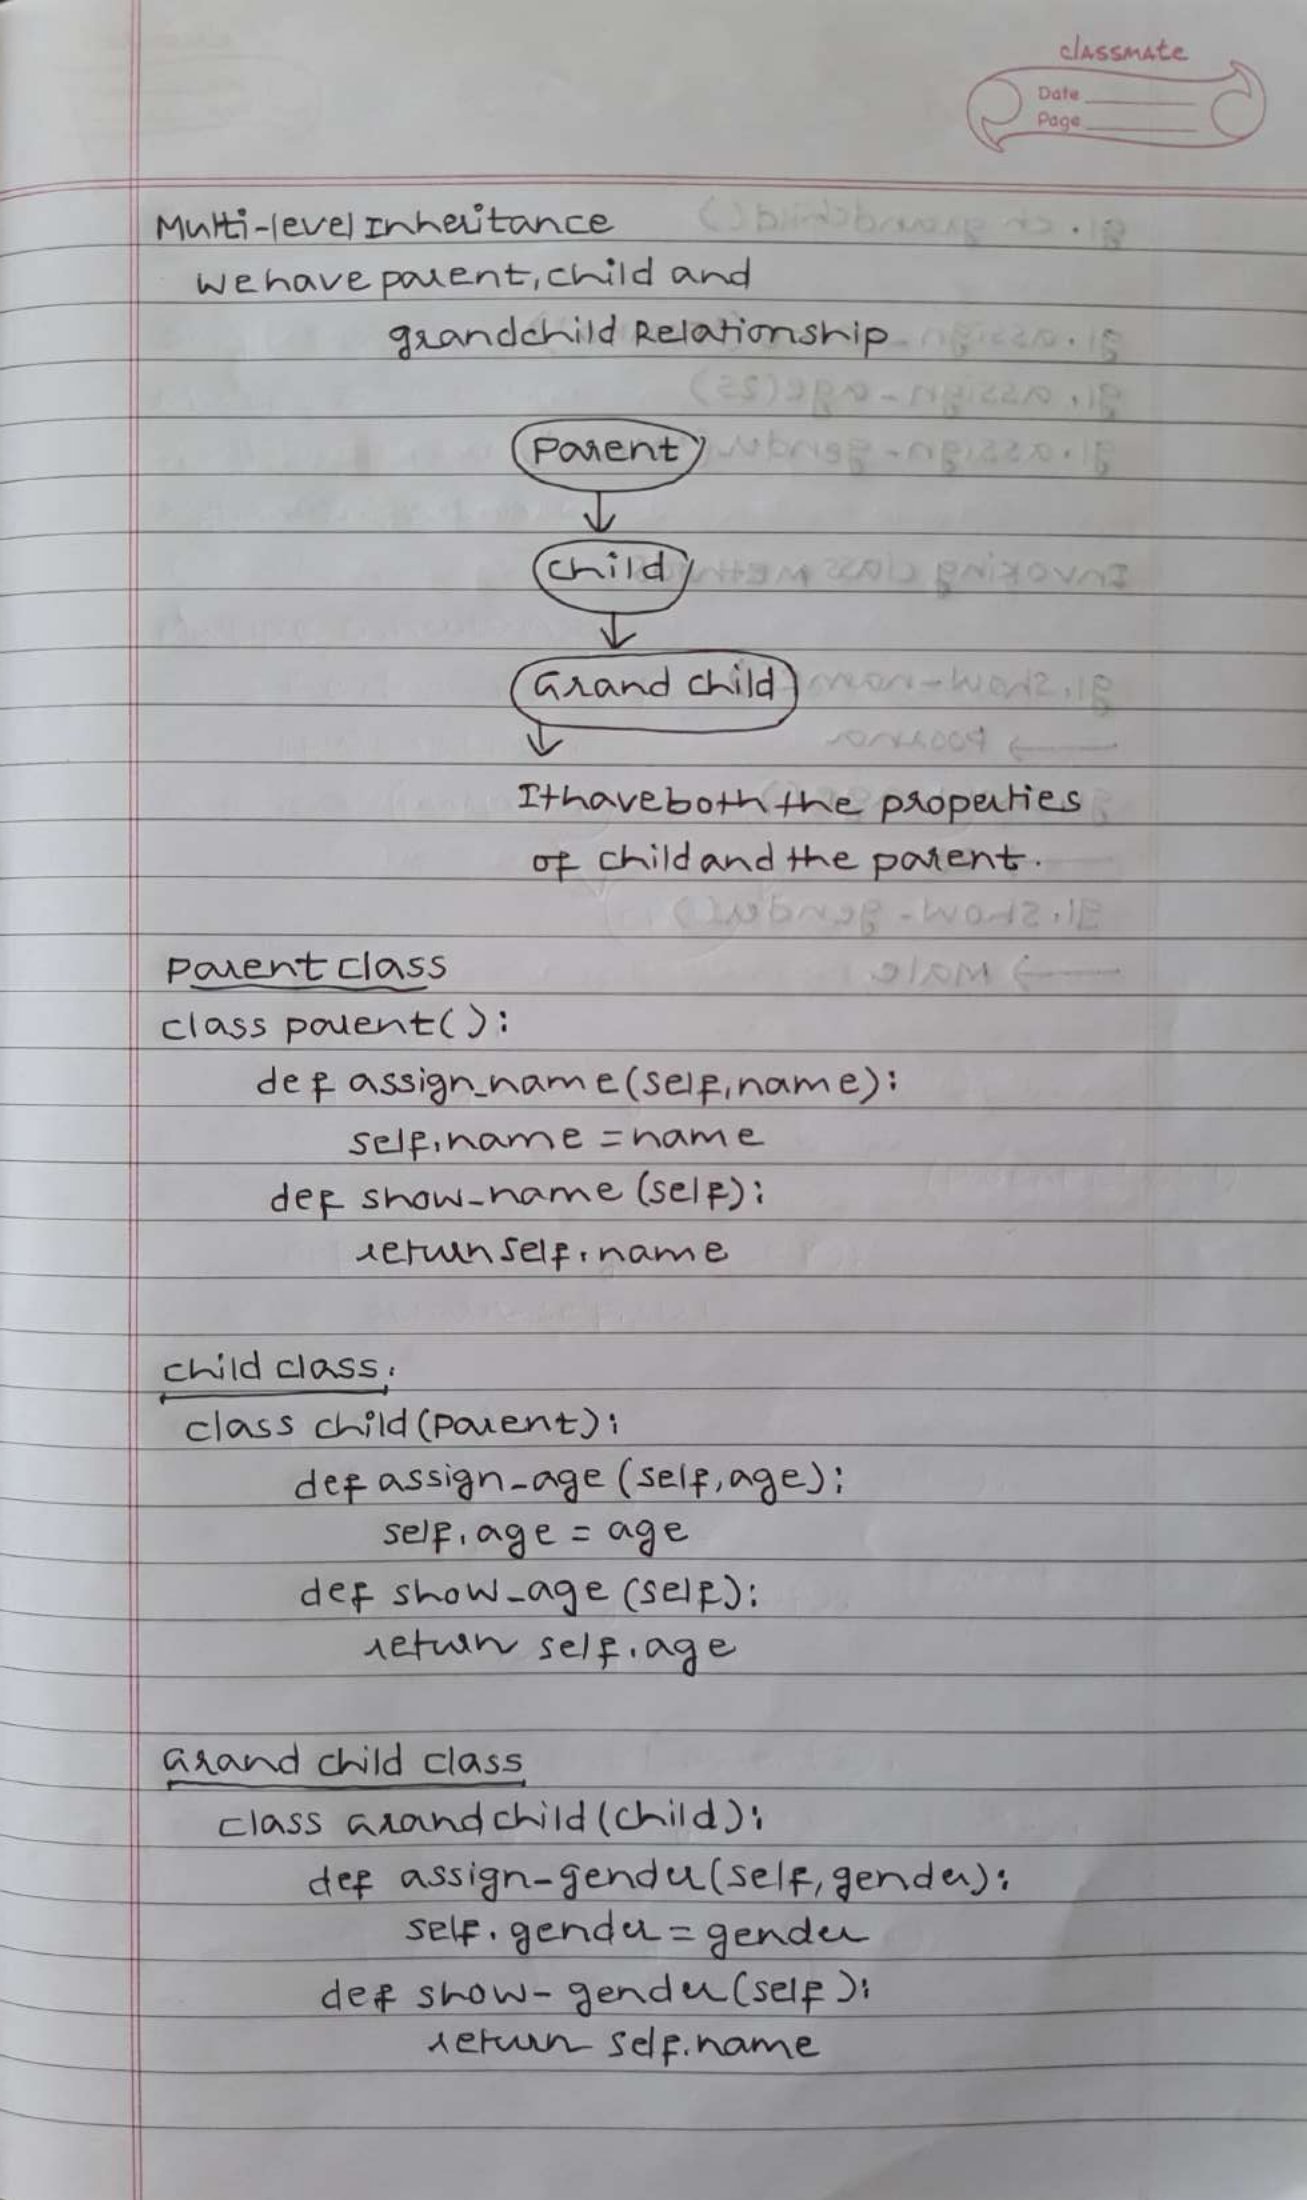 classmate
Date
Page
Multi-level Inheritance
we have parent, child and
grandchild Relationship
Parent
child
Grand child
It have both the properties
of child and the parent.
Parent class
class parent():
def assign_name(self,name):
self.name = name
def show_name (self):
return self.name
child class:
class child(parent):
def assign_age (self,age):
self.age = age
def show_age (self):
return self.age
Grand child class
class Grandchild(child):
def assign-gender(self,gender):
self.gender = gender
def show-gender(self):
return self.name